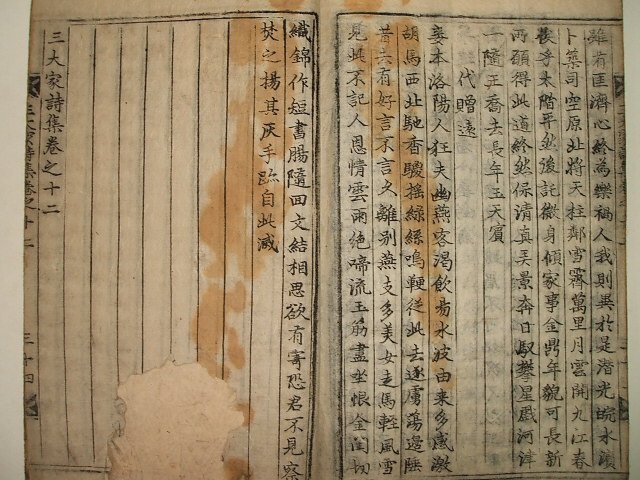 雖有匡濟心終為樂禍人我則異於是潛光皖水濱
卜築司空原北將天柱鄰雪霽萬里月雲開九江春
俟乎太階平然後託微身傾家事金鼎年貌可長新
所願得此道終然保清真弄景奔日馭攀星戲河津
一隨王喬去長年玉天賓
代贈遠
妾本洛陽人狂夫幽燕客渴飲易水波由来多感激
胡馬西北馳香騣搖綠絲鳴鞭從此去逐虜蕩邊陲
昔去有好言不言久離別燕支多美女走馬輕風雪
見此不記人恩情雲雨絶啼流玉筯盡坐恨金閨切
織錦作短書腸隨回文結相思欲有寄恐君不見察
焚之揚其灰手跡自此滅
三大家詩集卷之十二
三大家詩集卷之十二
三十四